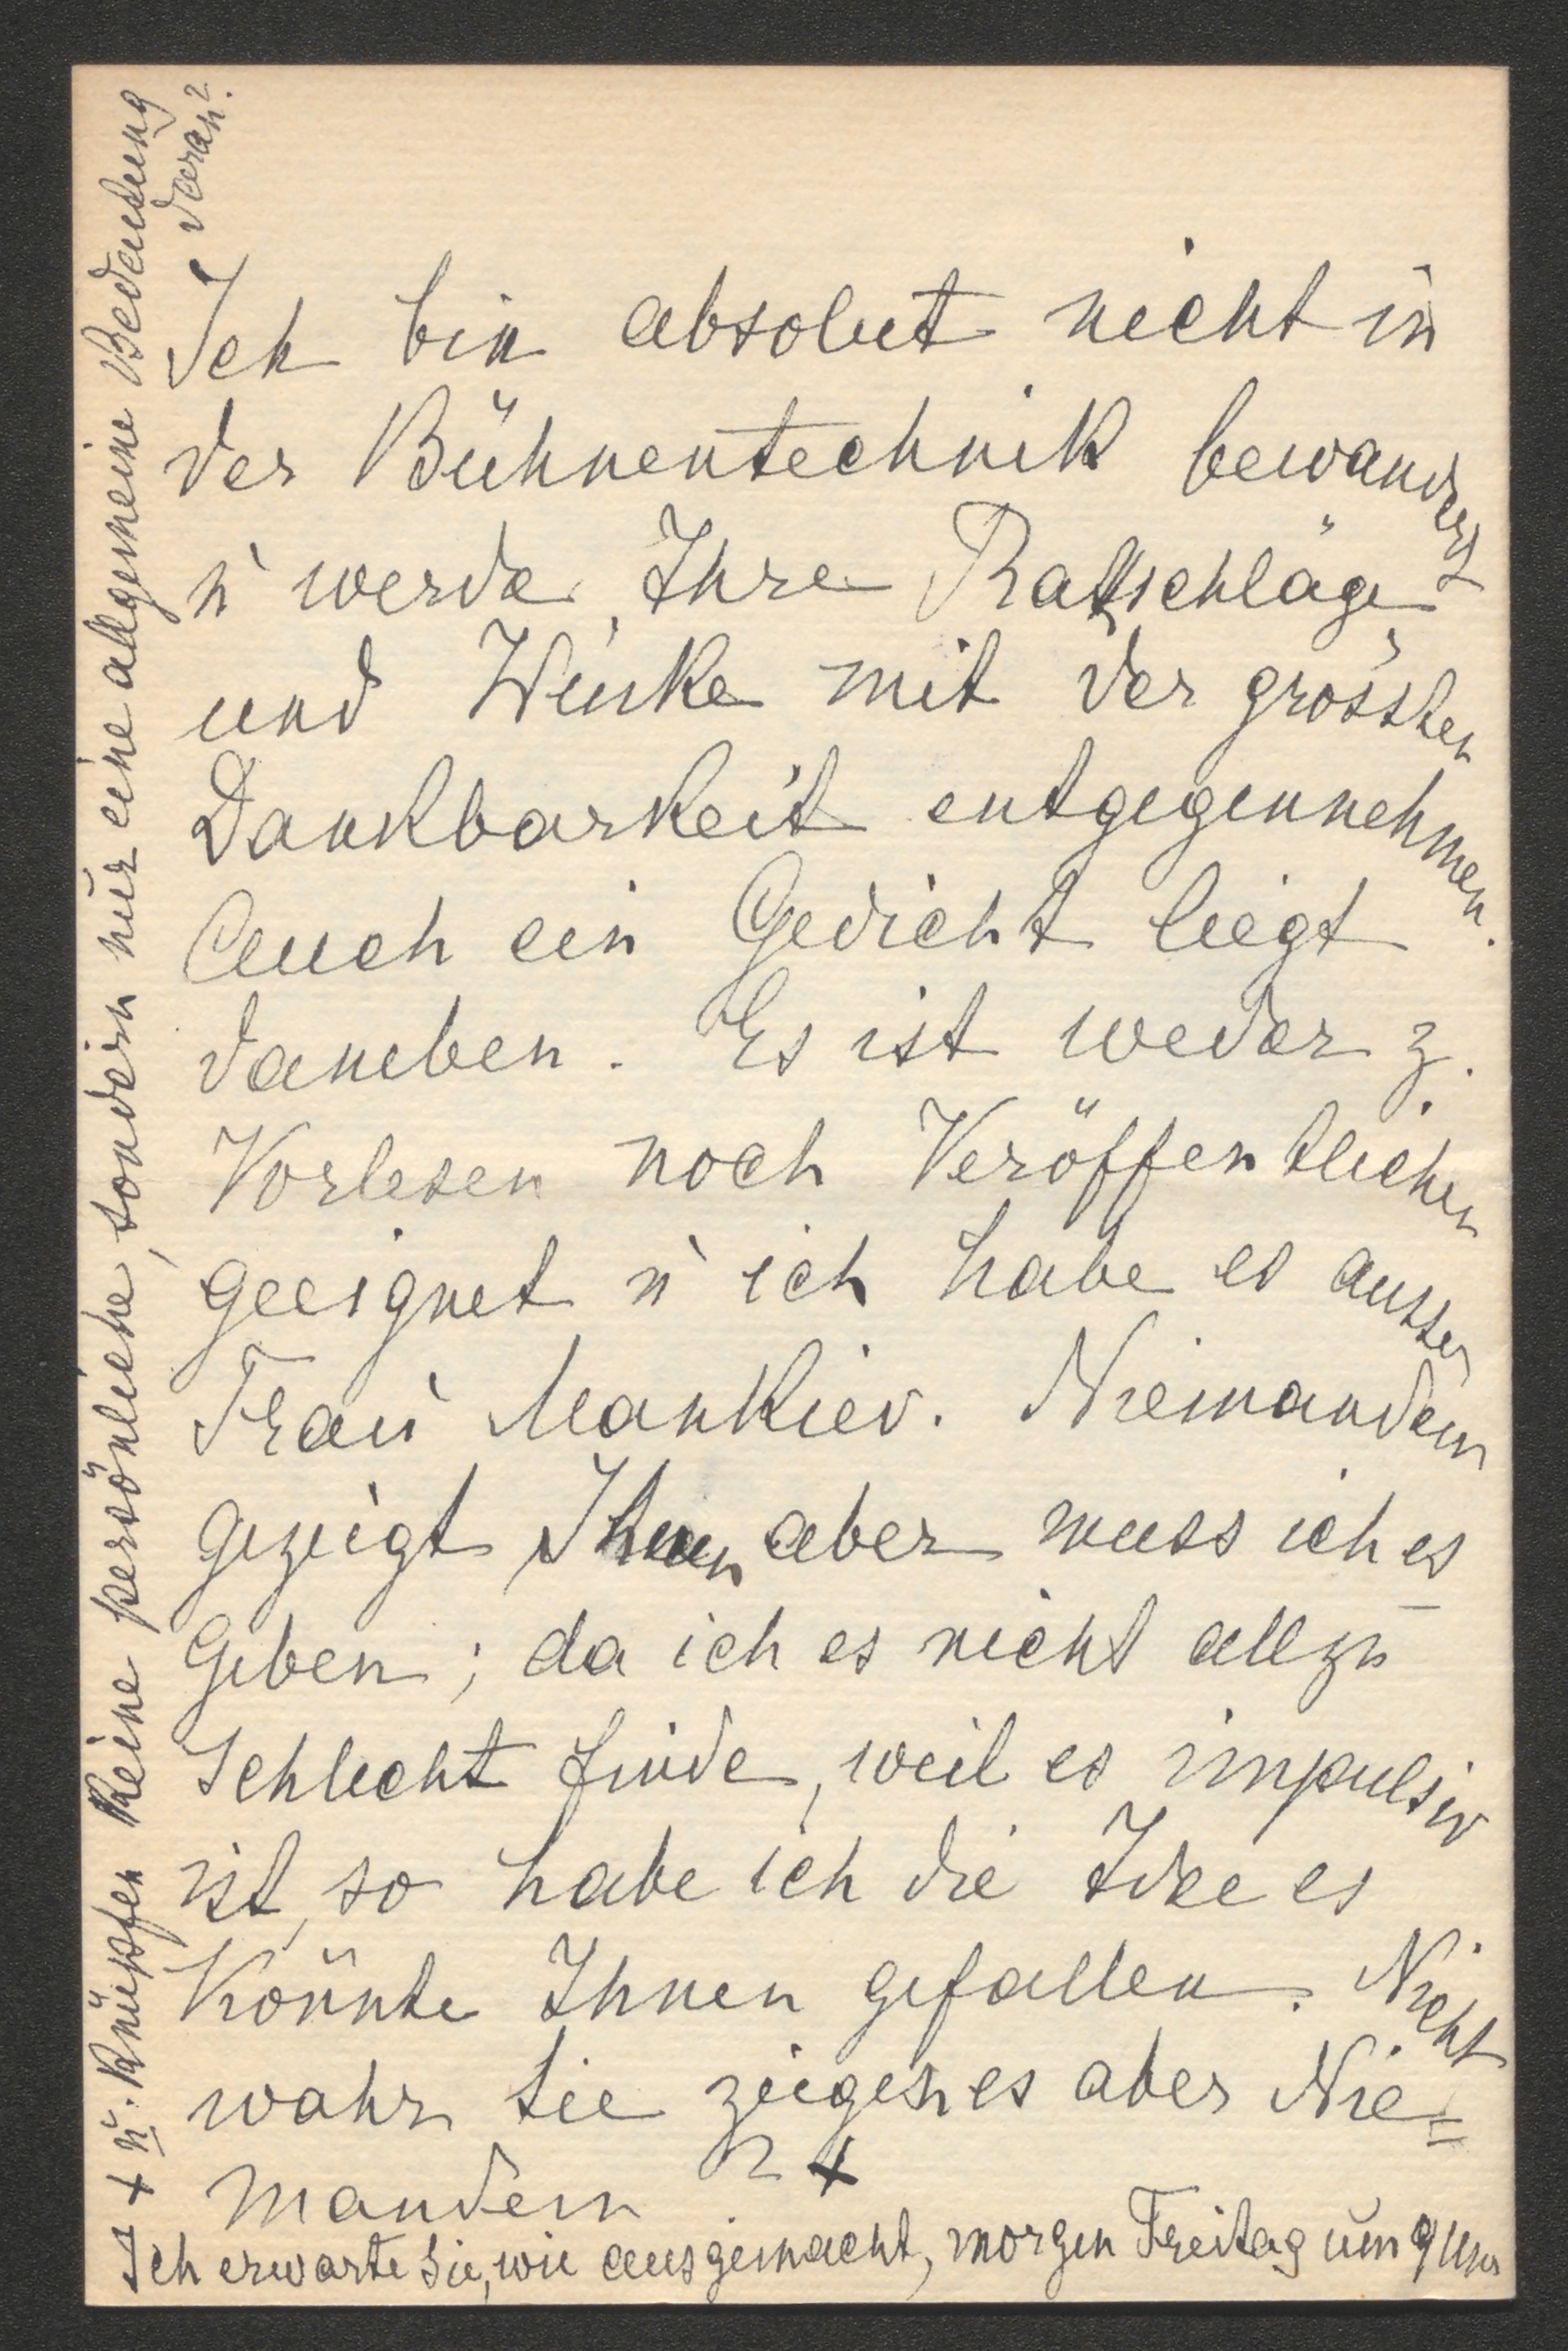 Ich bin absolut nicht in
der Bühnentechnik bewandert
u werde Ihre Ratschläge
und Winke mit der grössten
Dankbarkeit entgegennehmen.
Auch ein Gedicht liegt
daneben. Es ist weder z.
Vorlesen noch Veröffentlichen
geeignet u ich habe es ausser
Frau Mankiev. Niemandem
gezeigt Ihnen aber muss ich es
geben; da ich es nicht allzu
schlecht finde, weil es impulsiv
ist, so habe ich die Idee es
könnte Ihnen gefallen. Nicht
wahr Sie zeigen es aber Nie=
mandem ? +
Ich erwarte Sie, wie ausgemacht, morgen Freitag um 9 Uhr
+ u. knüpfen keine persönliche, sondern nur eine allgemeine Bedeutung
daran?